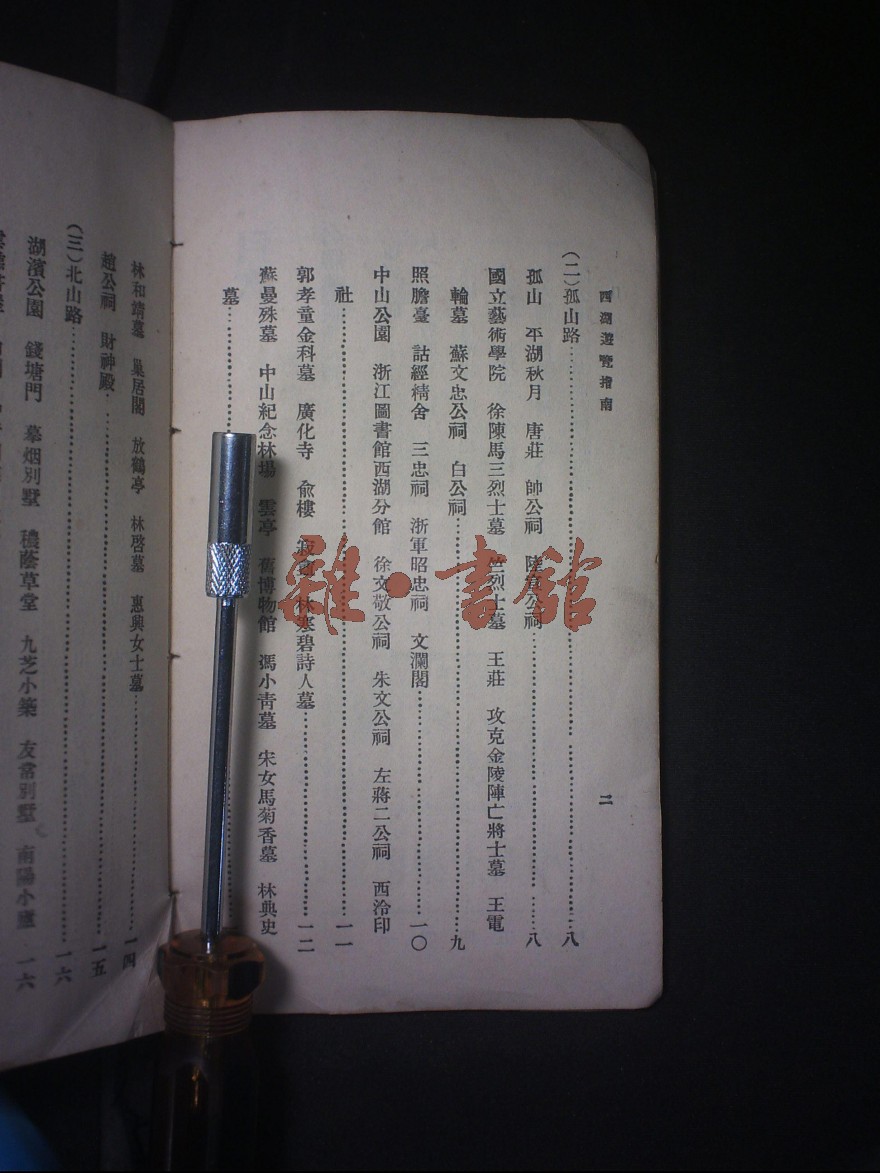 西湖遊覽指南 二
(二)孤山路……八
孤山 平湖秋月 唐莊 帥公祠 陸宣公祠……八
國立藝術學院 徐陳馬三烈士墓 竺烈士墓 王莊 攻克金陵陣亡將士墓 王電
輪墓 蘇文忠公祠 白公祠……九
照膽臺 詁經精舍 三忠祠 浙軍昭忠祠 文瀾閣……一〇
中山公園 浙江圖書館西湖分館 徐文敬公祠 朱文公祠 左蔣二公祠 西泠印
社……一一
郭孝童金科墓 廣化寺 俞樓 林寒碧詩人墓……一二
蘇曼殊墓 中山紀念林場 雲亭 舊博物館 馮小青墓 宋女馬菊香墓 林典史
墓……
林和靖墓 巢居閣 放鶴亭 林啓墓 惠興女士墓……一四
趙公祠 財神殿……一五
(三)北山路……一六
湖濱公園 錢塘門 摹烟別墅 穠蔭草堂 九芝小築 友常別墅 南陽小廬 一六
雜·書館